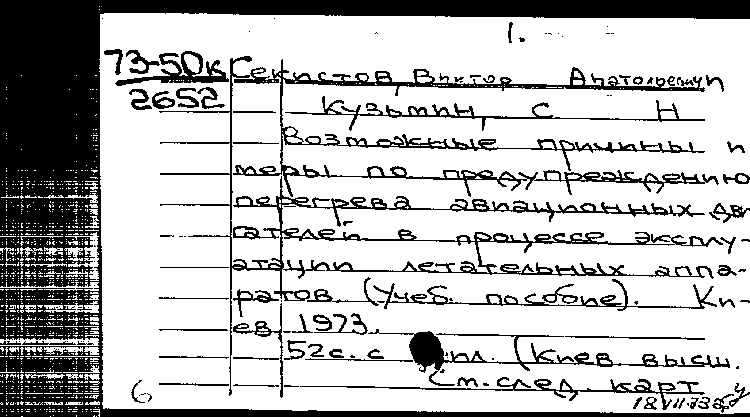 1.
73-50к Секистов, Виктор Анатольевич
2652
Кузьмин, С Н
Возможные причины и
меры по предупреждению
перегрева авиационных дви
гателей в процессе эксплу-
атации летательных аппа-
ратов. (Учеб. пособие). Ки-
ев, 1973.
52с. с ил. (Киев. высш.
См. след. карт
6
18 VII 73